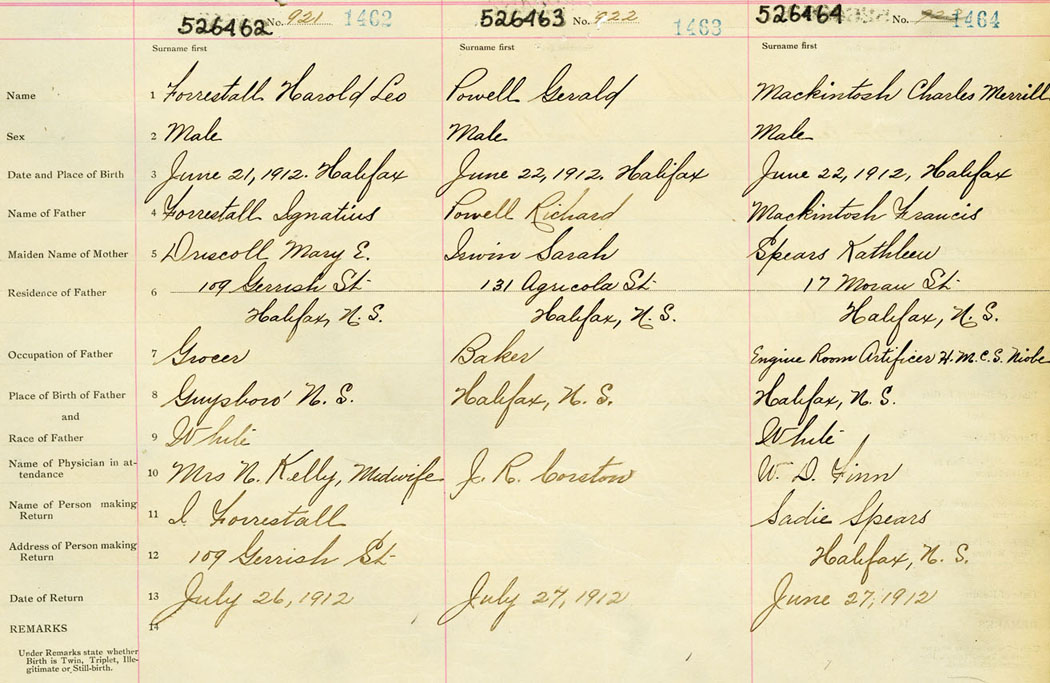 526462 No. 921 1462 526463 No. 922 1463 526464 No. 1464
Surname first Surname first Surname first
Name 1 Forrestall Harold Leo Powell Gerald Mackintosh Charles Merrill
Sex 2 Male Male Male
Date and Place of Birth 3 June 21, 1912. Halifax June 22, 1912. Halifax June 22, 1912, Halifax
Name of Father 4 Forrestall Ignatius Powell Richard Mackintosh Francis
Maiden Name of Mother 5 Driscoll Mary E. Irwin Sarah Spears Kathleen
Residence of Father 6 109 Gerrish St. 131 Agricola St. 17 Moran St.
Halifax, N. S. Halifax, N. S. Halifax, N. S.
Occupation of Father 7 Grocer Baker Engine Room Artificer H.M.C.S. Niobe
Place of Birth of Father 8 Guysboro' N. S. Halifax, N. S. Halifax, N. S.
and
Race of Father 9 White White
Name of Physician in at-
tendance 10 Mrs N. Kelly, Midwife J. R. Corston W. D. Finn
Name of Person making
Return 11 I Forrestall Sadie Spears
Address of Person making
Return 12 109 Gerrish St Halifax, N. S.
Date of Return 13 July 26, 1912 July 27, 1912 June 27, 1912
REMARKS 14
Under Remarks state whether
Birth is Twin, Triplet, Ille-
gitimate or Still-birth.